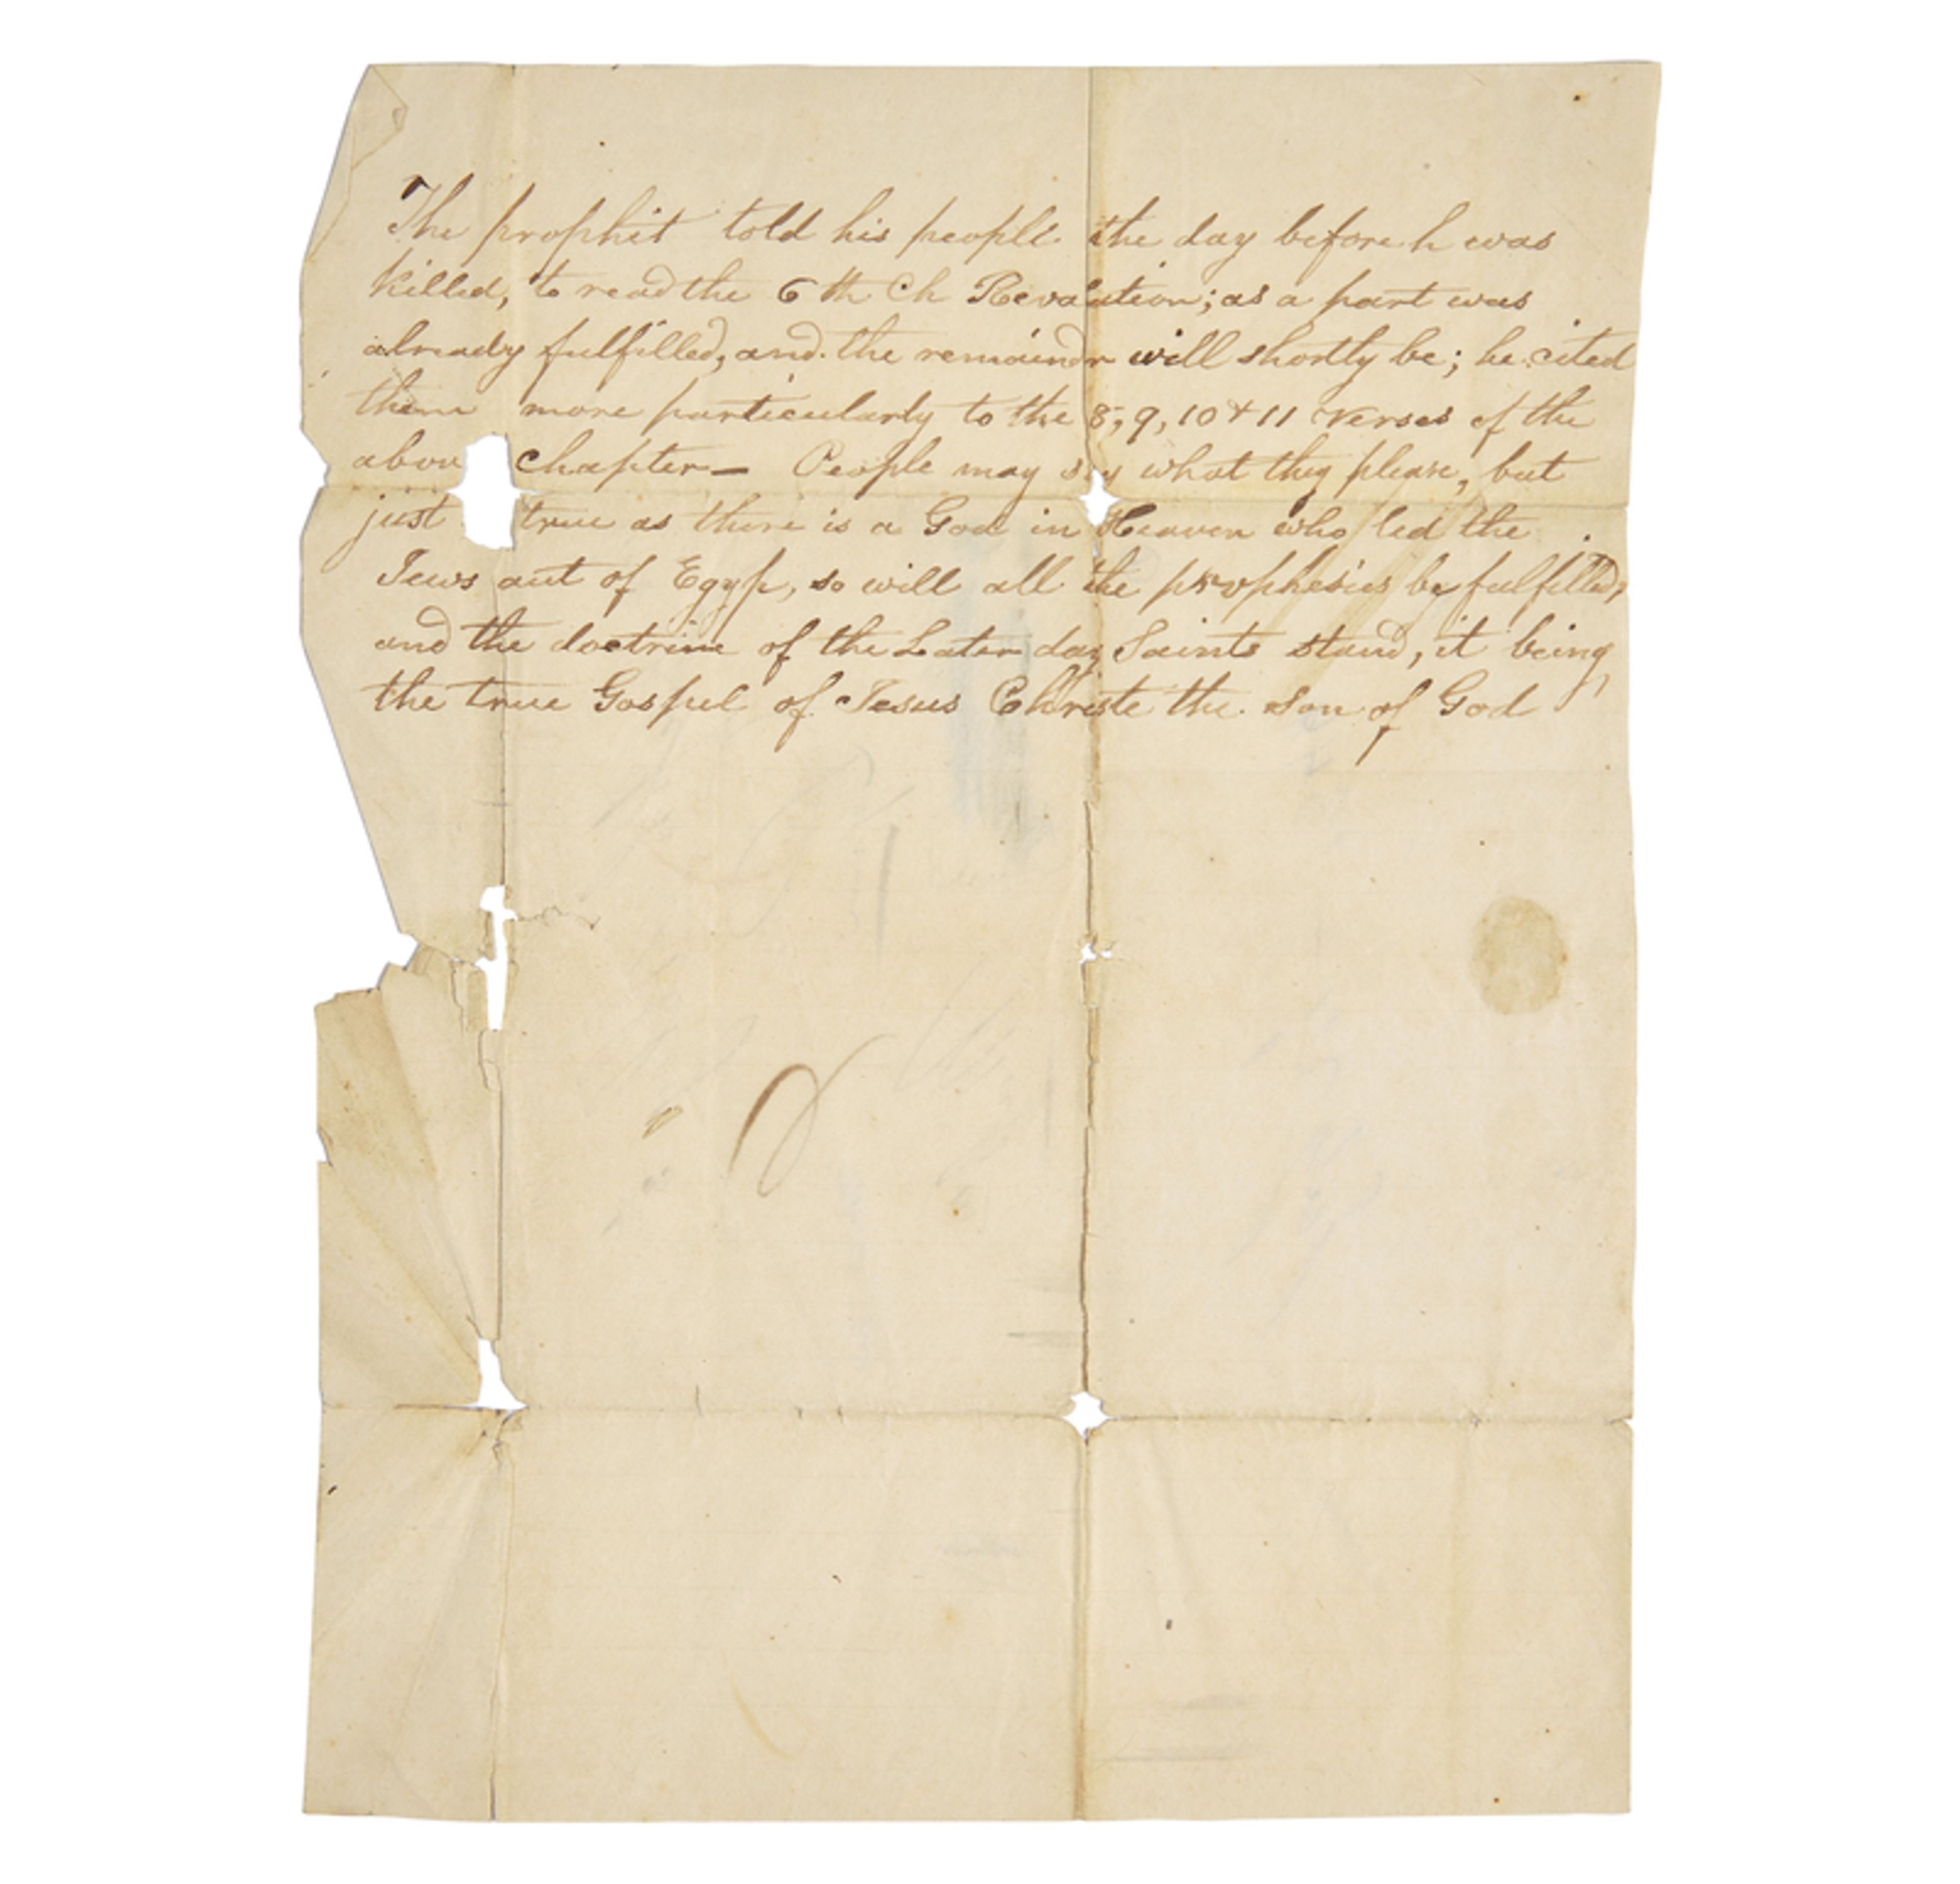 The prophit told his people the day before h was
killed, to read the 6th Ch Revalation; as a part was
already fulfilled, and the remaindr will shortly be; he cited
them more particularly to the 8, 9, 10 & 11 verses of the
abov chapter — People may say what they please, but
just true as there is a God in Heaven who led the
Jews out of Egyp, so will all the prophesies be fulfilled,
and the doctrine of the Later day Saints stand, it being,
the true Gospel of Jesus Christe the Son of God